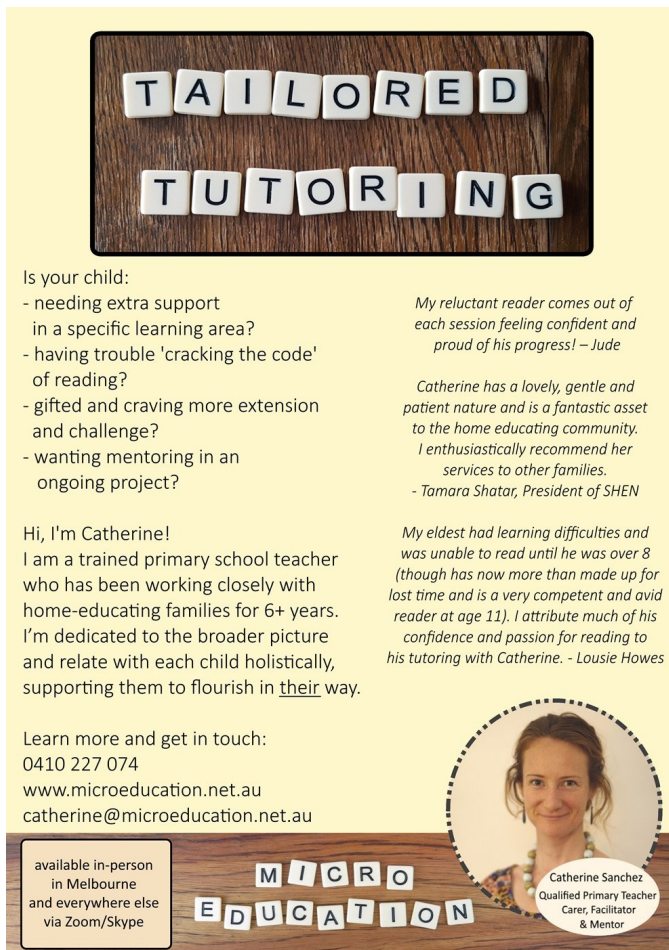 TAILORED
TUTORING
Is your child:
- needing extra support
in a specific learning area?
- having trouble 'cracking the code'
of reading?
- gifted and craving more extension
and challenge?
- wanting mentoring in an
ongoing project?
Hi, I'm Catherine!
I am a trained primary school teacher
who has been working closely with
home-educating families for 6+ years.
I’m dedicated to the broader picture
and relate with each child holistically,
supporting them to flourish in their way.
Learn more and get in touch:
0410 227 074
www.microeducation.net.au
catherine@microeducation.net.au
My reluctant reader comes out of
each session feeling confident and
proud of his progress! – Jude
Catherine has a lovely, gentle and
patient nature and is a fantastic asset
to the home educating community.
I enthusiastically recommend her
services to other families.
- Tamara Shatar, President of SHEN
My eldest had learning difficulties and
was unable to read until he was over 8
(though has now more than made up for
lost time and is a very competent and avid
reader at age 11). I attribute much of his
confidence and passion for reading to
his tutoring with Catherine. - Lousie Howes
available in-person
in Melbourne
and everywhere else
via Zoom/Skype
MICRO
EDUCATION
Catherine Sanchez
Qualified Primary Teacher
Carer, Facilitator
& Mentor